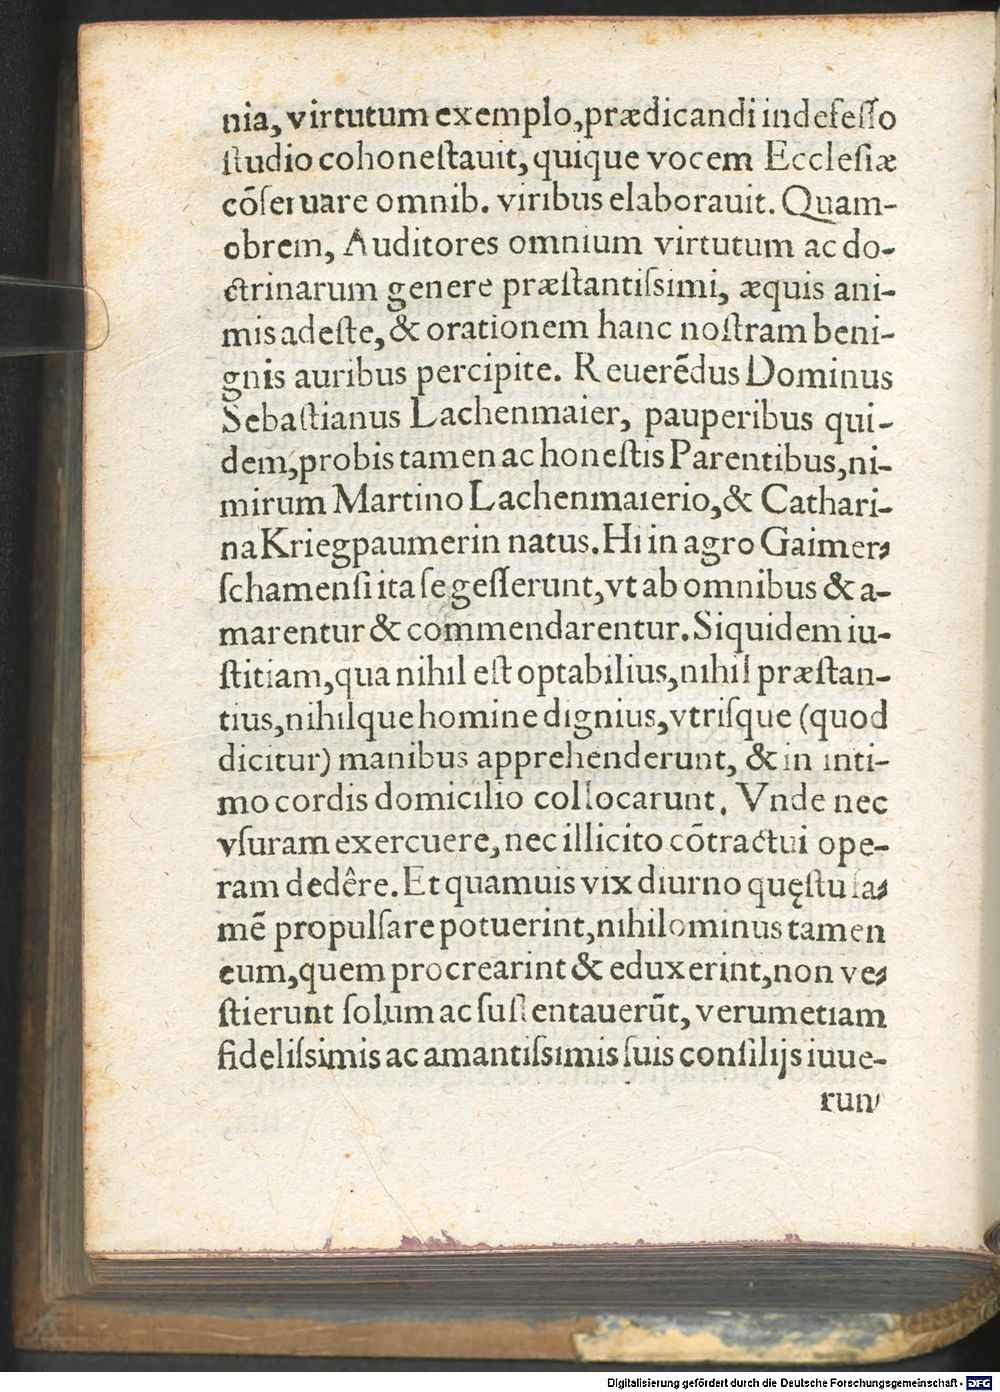 nia, virtutum exemplo, prædicandi indefeſſo
ſtudio cohoneſtauit, quique vocem Eccleſiæ
cõſeruare omnib. viribus elaborauit. Quam-
obrem, Auditores omnium virtutum ac do-
ctrinarum genere præſtantiſsimi, æquis ani-
mis adeſte, & orationem hanc noſtram beni-
gnis auribus percipite. Reuerẽdus Dominus
Sebaſtianus Lachenmaier, pauperibus qui-
dem, probis tamen ac honeſtis Parentibus, ni-
mirum Martino Lachenmaierio, & Cathari-
na Kriegpaumerin natus. Hi in agro Gaimer-
ſchamenſi ita ſe geſſerunt, vt ab omnibus & a-
marentur & commendarentur. Siquidem iu-
ſtitiam, qua nihil eſt optabilius, nihil præſtan-
tius, nihilque homine dignius, vtriſque (quod
dicitur) manibus apprehenderunt, & in inti-
mo cordis domicilio collocarunt. Vnde nec
vſuram exercuere, nec illicito cõtractui ope-
ram dedêre. Et quamuis vix diurno quęſtu fa-
mẽ propulſare potuerint, nihilominus tamen
eum, quem procrearint & eduxerint, non ve-
ſtierunt ſolum ac ſuſtentauerũt, verumetiam
fideliſsimis ac amantiſsimis ſuis conſilijs iuue-
runt
Digitalisierung gefördert durch die Deutsche Forschungsgemeinschaft - DFG